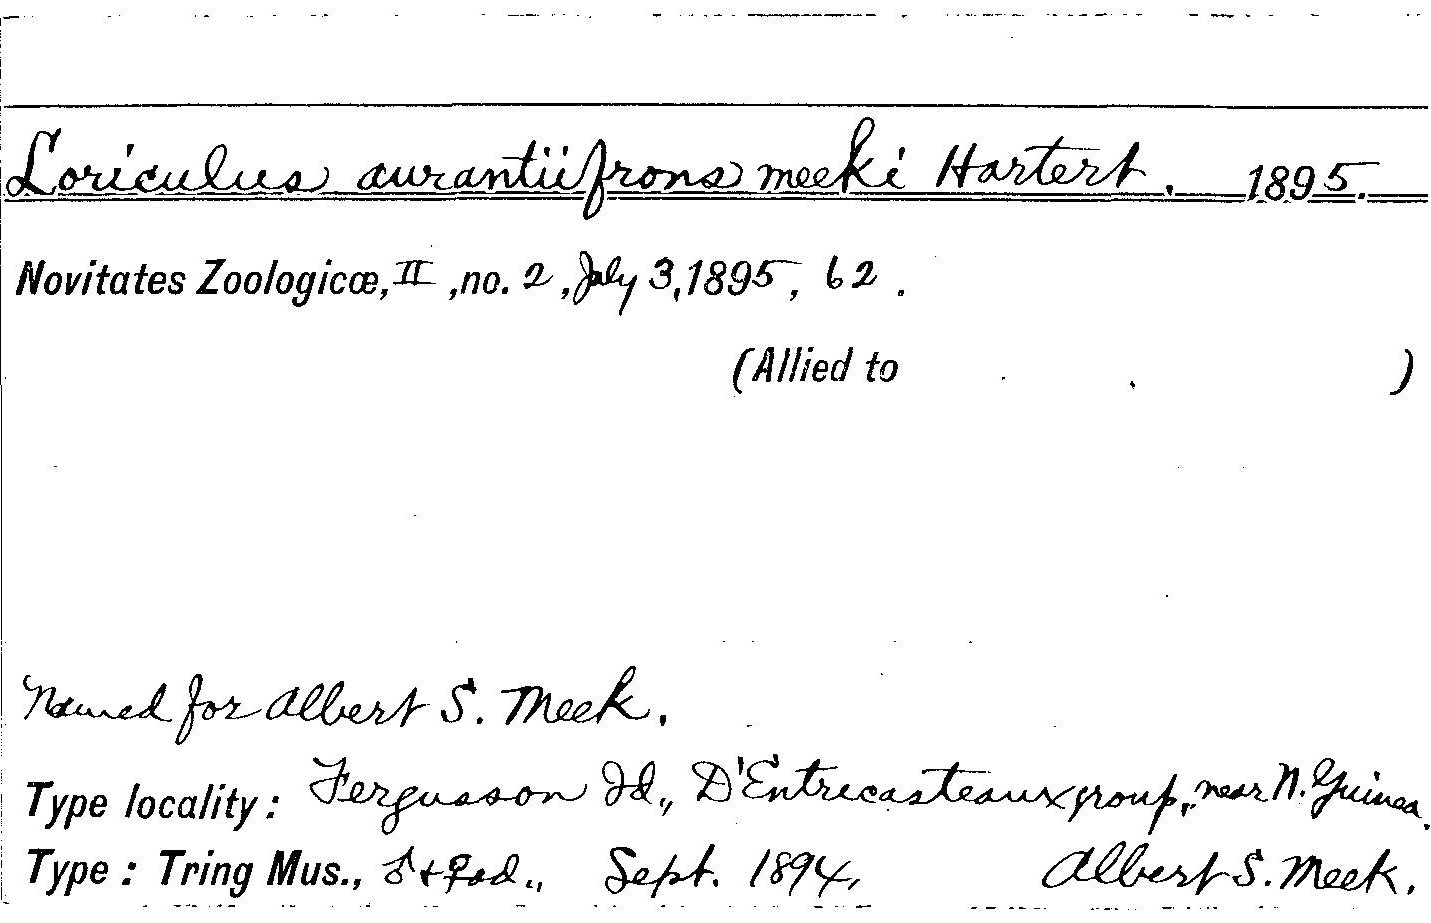 Loriculus aurantiifrons meeki Hartert. 1895.
Novitates Zoologicæ, II, no. 2, July 3, 1895, 62.
(Allied to )
Named for Albert S. Meek.
Type locality: Fergusson Id., D'Entrecasteaux group, near N. Guinea.
Type: Tring Mus., ♂ + ♀ ad., Sept. 1894, Albert S. Meek.